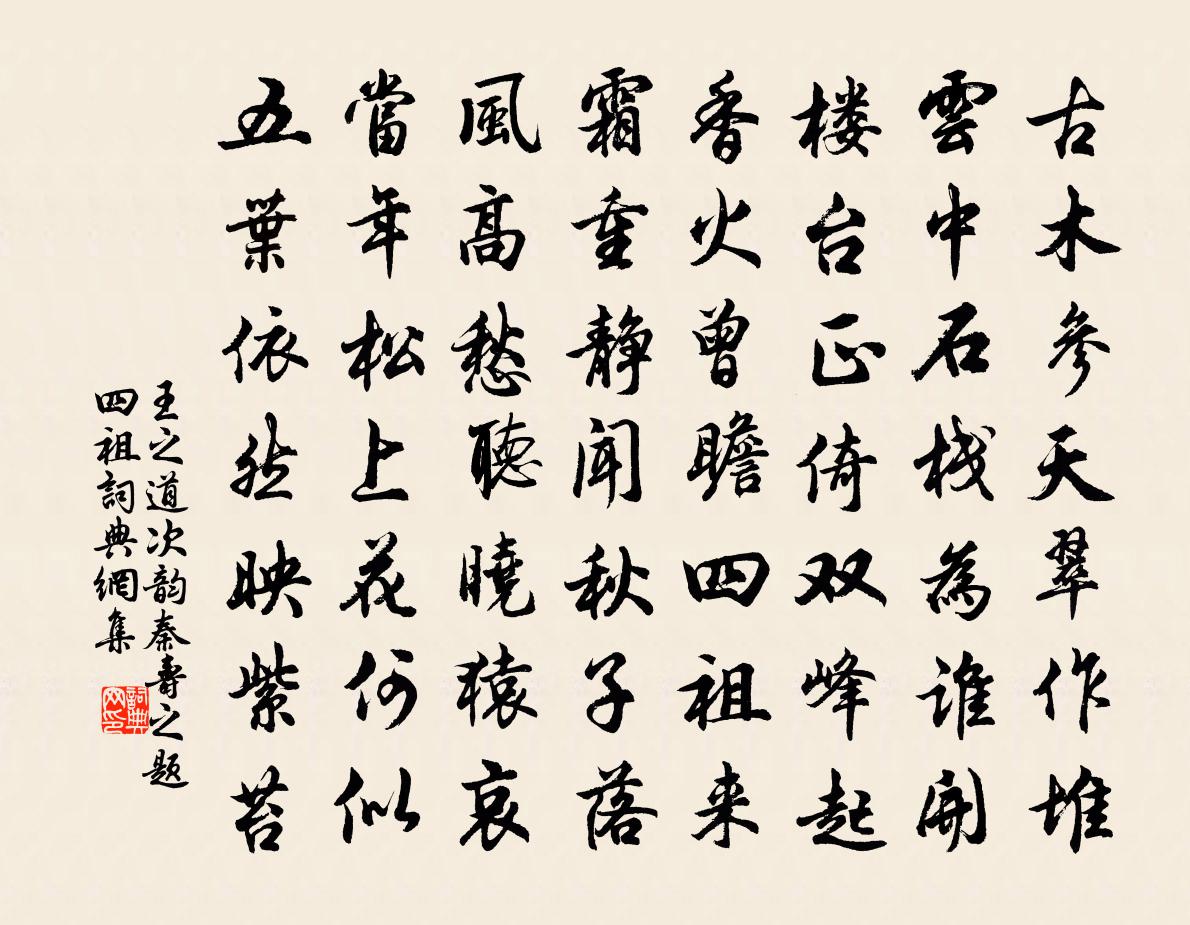 古木參天翠作堆
雲中石栈為谁開
楼台正倚双峰起
香火曾瞻四祖来
霜重静闻秋子落
風高愁聽曉猿哀
當年松上花何似
五葉依然映紫苔
王之道次韵秦寿之题
四祖詞典網集
詞典
网印